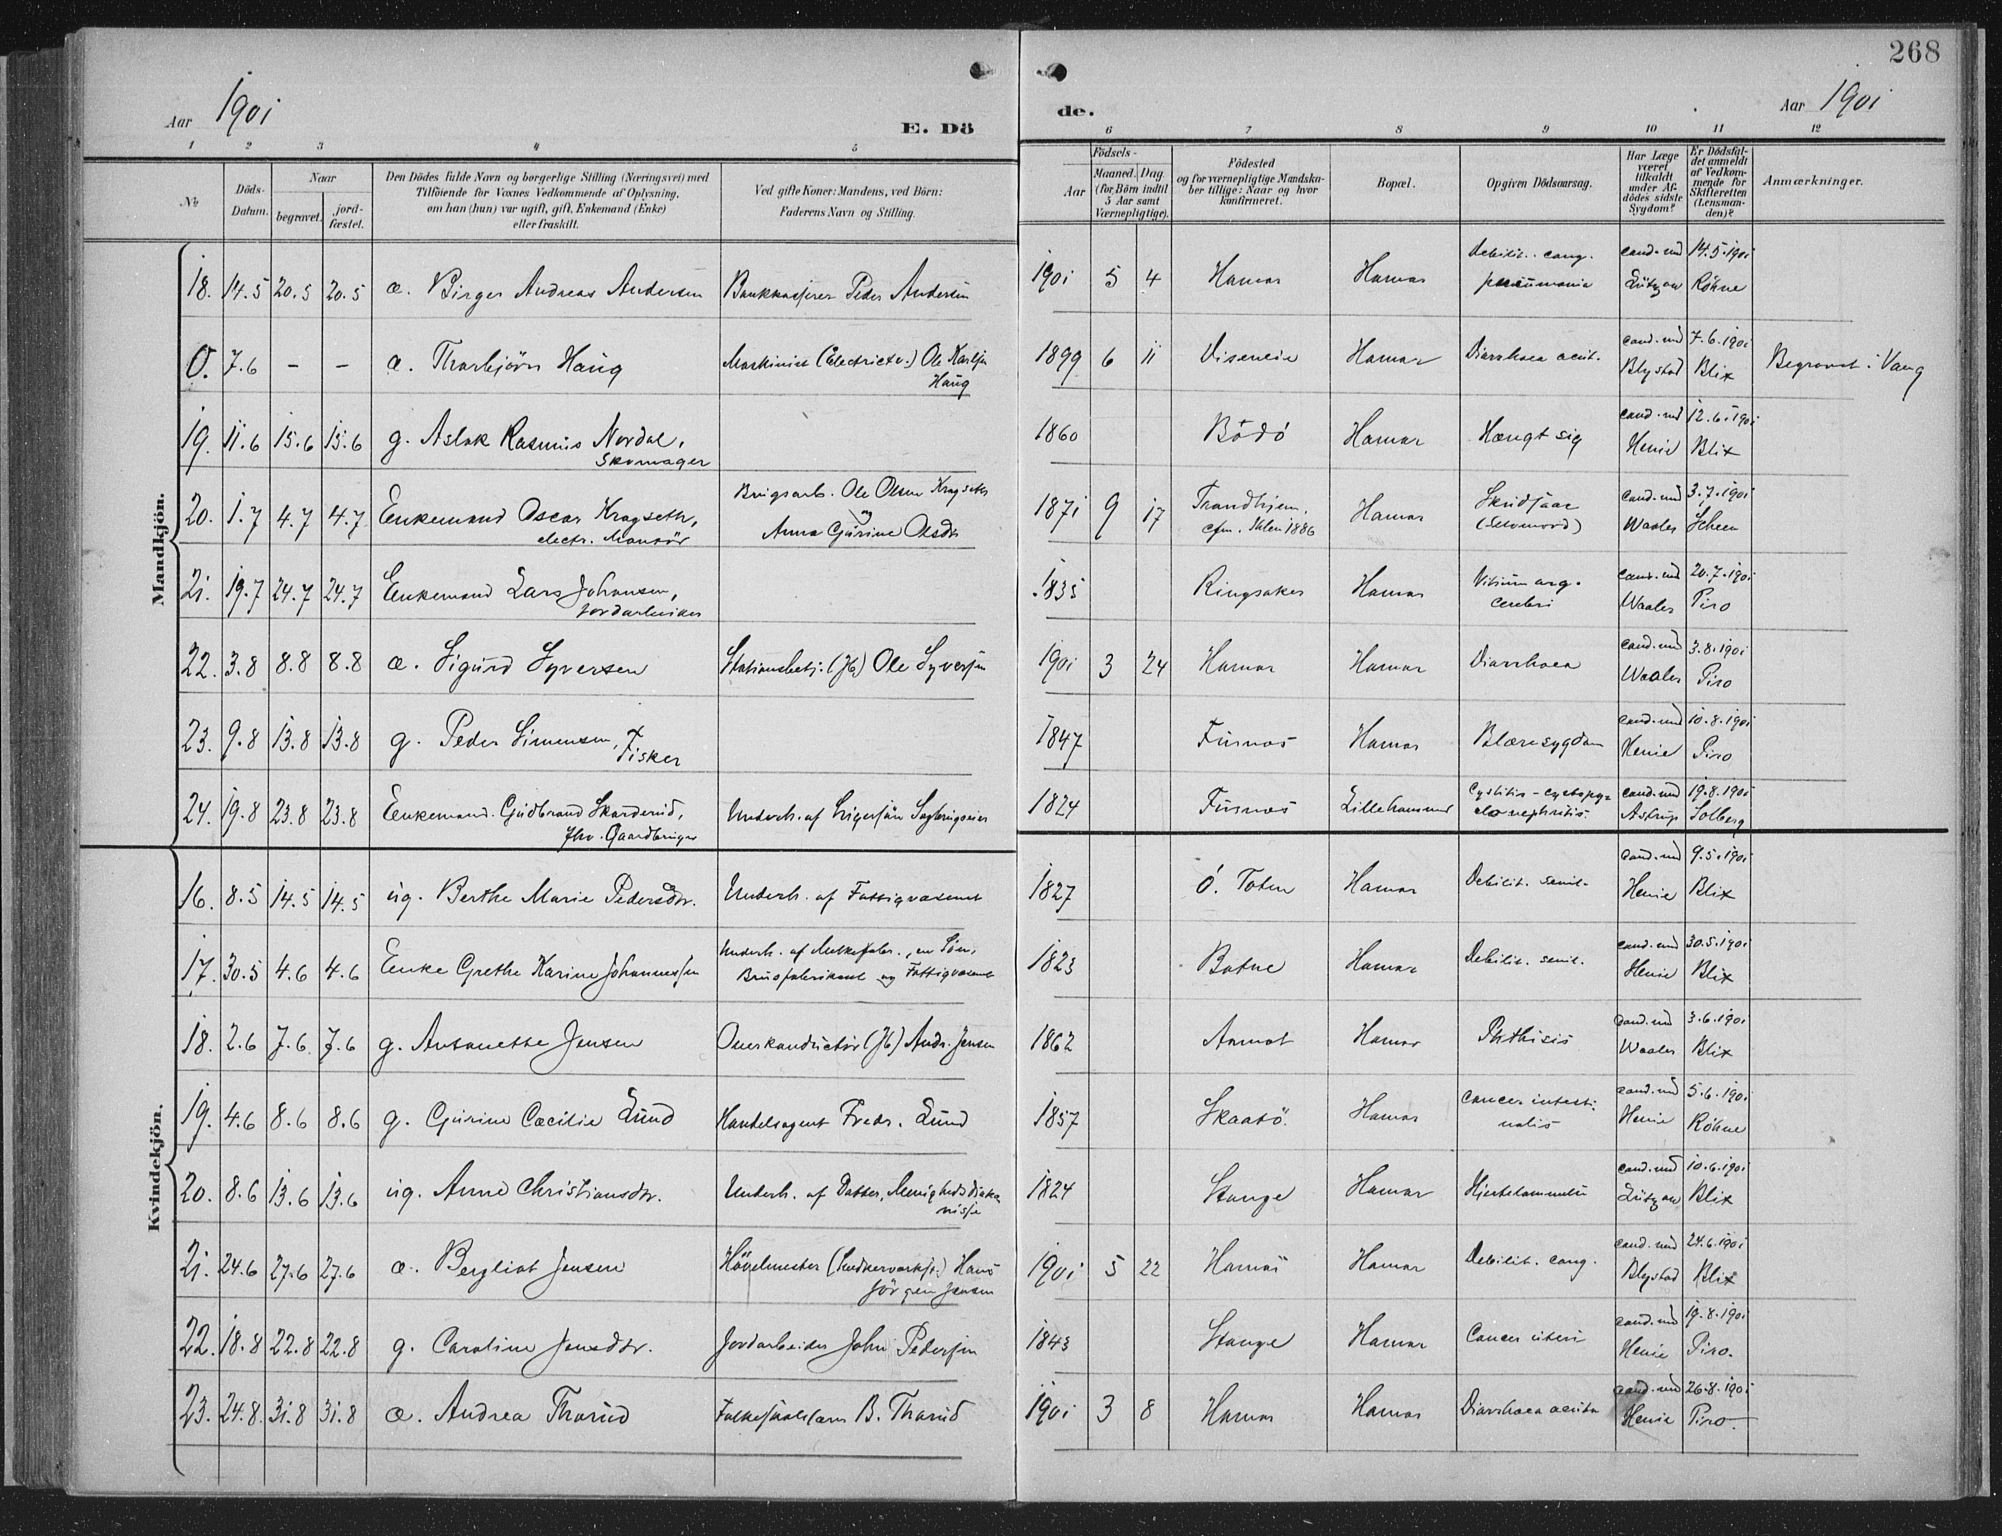 268
Aar 1901
E. Dö
de.
Aar 1901
1 2 3 4 5
6 7 8 9 10 11 12
№
Döds-
Datum.
Naar
begravet.
jord-
fæstet.
Den Dödes fulde Navn og borgerlige Stilling (Næringsvei) med
Tilföiende for Voxnes Vedkommende af Oplysning,
om han (hun) var ugift, gift, Enkemand (Enke)
eller fraskilt.
Ved gifte Koner: Mandens, ved Börn:
Faderens Navn og Stilling.
Födsels-
Aar
Maaned. Dag
(for Börn indtil
5 Aar samt
Værnepligtige).
Födested
og for værnepligtige Mandska-
ber tillige: Naar og hvor
konfirmeret.
Bopæl.
Opgiven Dödsaarsag.
Har Læge
været
tilkaldt
under Af-
dödes sidste
Sygdom?
Er Dödsfal-
det anmeldt
af Vedkom-
mende for
Skifteretten
(Lensman-
den)?
Anmærkninger.
Mandkjön.
18. 14.5 20.5 20.5 a. Birger Andreas Andersen Bankkasserer Peder Andersen 1901 5 4 Hamar Hamar Debilit. cong. pneumonia cand. med Lützow 14.5.1901 Röhne
0. 7.6 – – a. Thorbjörn Haug Maskinist (Electricitv.) Ole Karlsen Haug 1899 6 11 Hamar Diarrhoea acut. cand. med Blystad 7.6.1901 Blix Begravet i Vang
19. 11.6 15.6 15.6 g. Aslak Rasmus Nordal, Skomager 1860 Bodö Hamar Hængt sig cand. med Henie 12.6.1901 Blix
20. 1.7 4.7 4.7 Enkemand Oscar Kragseth, electr. Montör Brugsarb. Ole Olsen Kragseth og Anna Gurine Olsdtr 1871 9 17 Trondhjem, cfm. 1886 Hamar Skudsaar (Selvmord) cand. med Waaler 3.7.1901 Scheen
21. 19.7 24.7 24.7 Enkemand Lars Johansen, Jordarbeider 1835 Ringsaker Hamar Vitium org. cerebri cand. med Waaler 20.7.1901 Piro
22. 3.8 8.8 8.8 a. Sigurd Syversen Stationsbetj. (Jb) Ole Syversen 1901 3 24 Hamar Hamar Diarrhoea cand. med Waaler 3.8.1901 Piro
23. 9.8 13.8 13.8 g. Peder Simensen, Fisker 1847 Furnæs Hamar Blæresygdom cand. med Henie 10.8.1901 Piro
24. 19.8 23.8 23.8 Enkemand Gudbrand Skarderud, fhv. Gaardbruger Underh. af Svigersön Sagbrugseier 1824 Furnæs Lillehammer Cystitis – cystopyelonephritis cand. med Astrup 19.8.1901 Solberg
Kvindekjön.
16. 8.5 14.5 14.5 ug. Berthe Marie Pedersdtr. Underh. af Fattigvæsenet 1827 Ö. Toten Hamar Debilit. senil. cand. med Henie 9.5.1901 Blix
17. 30.5 4.6 4.6 Enke Grethe Karine Johannessen Underh. af en Sön, Brusfabrikant og Fattigvæsenet 1823 Botne Hamar Debilit. senil. cand. med Henie 30.5.1901 Blix
18. 2.6 7.6 7.6 g. Antonette Jensen Overkonductör (Jb) Andr. Jensen 1862 Aamot Hamar Phthisis cand. med Waaler 3.6.1901 Blix
19. 4.6 8.6 8.6 g. Gurine Cæcilie Lund Handelsagent Fredr. Lund 1857 Skaatö Hamar cancer intestinalis cand. med Henie 5.6.1901 Röhne
20. 8.6 13.6 13.6 ug. Anne Christiansdtr. Underh. af Datter, Menighedsdiakonisse 1824 Stange Hamar Hjertelammelse cand. med Lützow 10.6.1901 Blix
21. 24.6 27.6 27.6 a. Bergliot Jensen Hövelmester Hans Jörgen Jensen 1901 5 22 Hamar Hamar Debilit. cong. cand. med Blystad 24.6.1901 Blix
22. 18.8 22.8 22.8 g. Caroline Jensdtr. Jordarbeider John Pedersen 1843 Stange Hamar Cancer uteri cand. med Henie 19.8.1901 Piro.
23. 24.8. 31.8 31.8 a. Andrea Thorud Folkeskolelærer B. Thorud 1901 3 8 Hamar Hamar Diarrhoea acuta cand. med Henie 26.8.1901 Piro